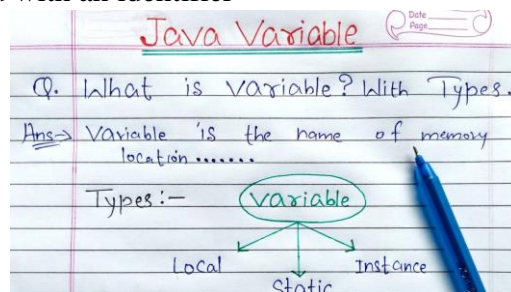 with an identifier
Java Variable
Date
Page
Q. What is variable? With Types.
Ans→ Variable is the name of memory
location .......
Types :-
variable
Local
Static
Instance